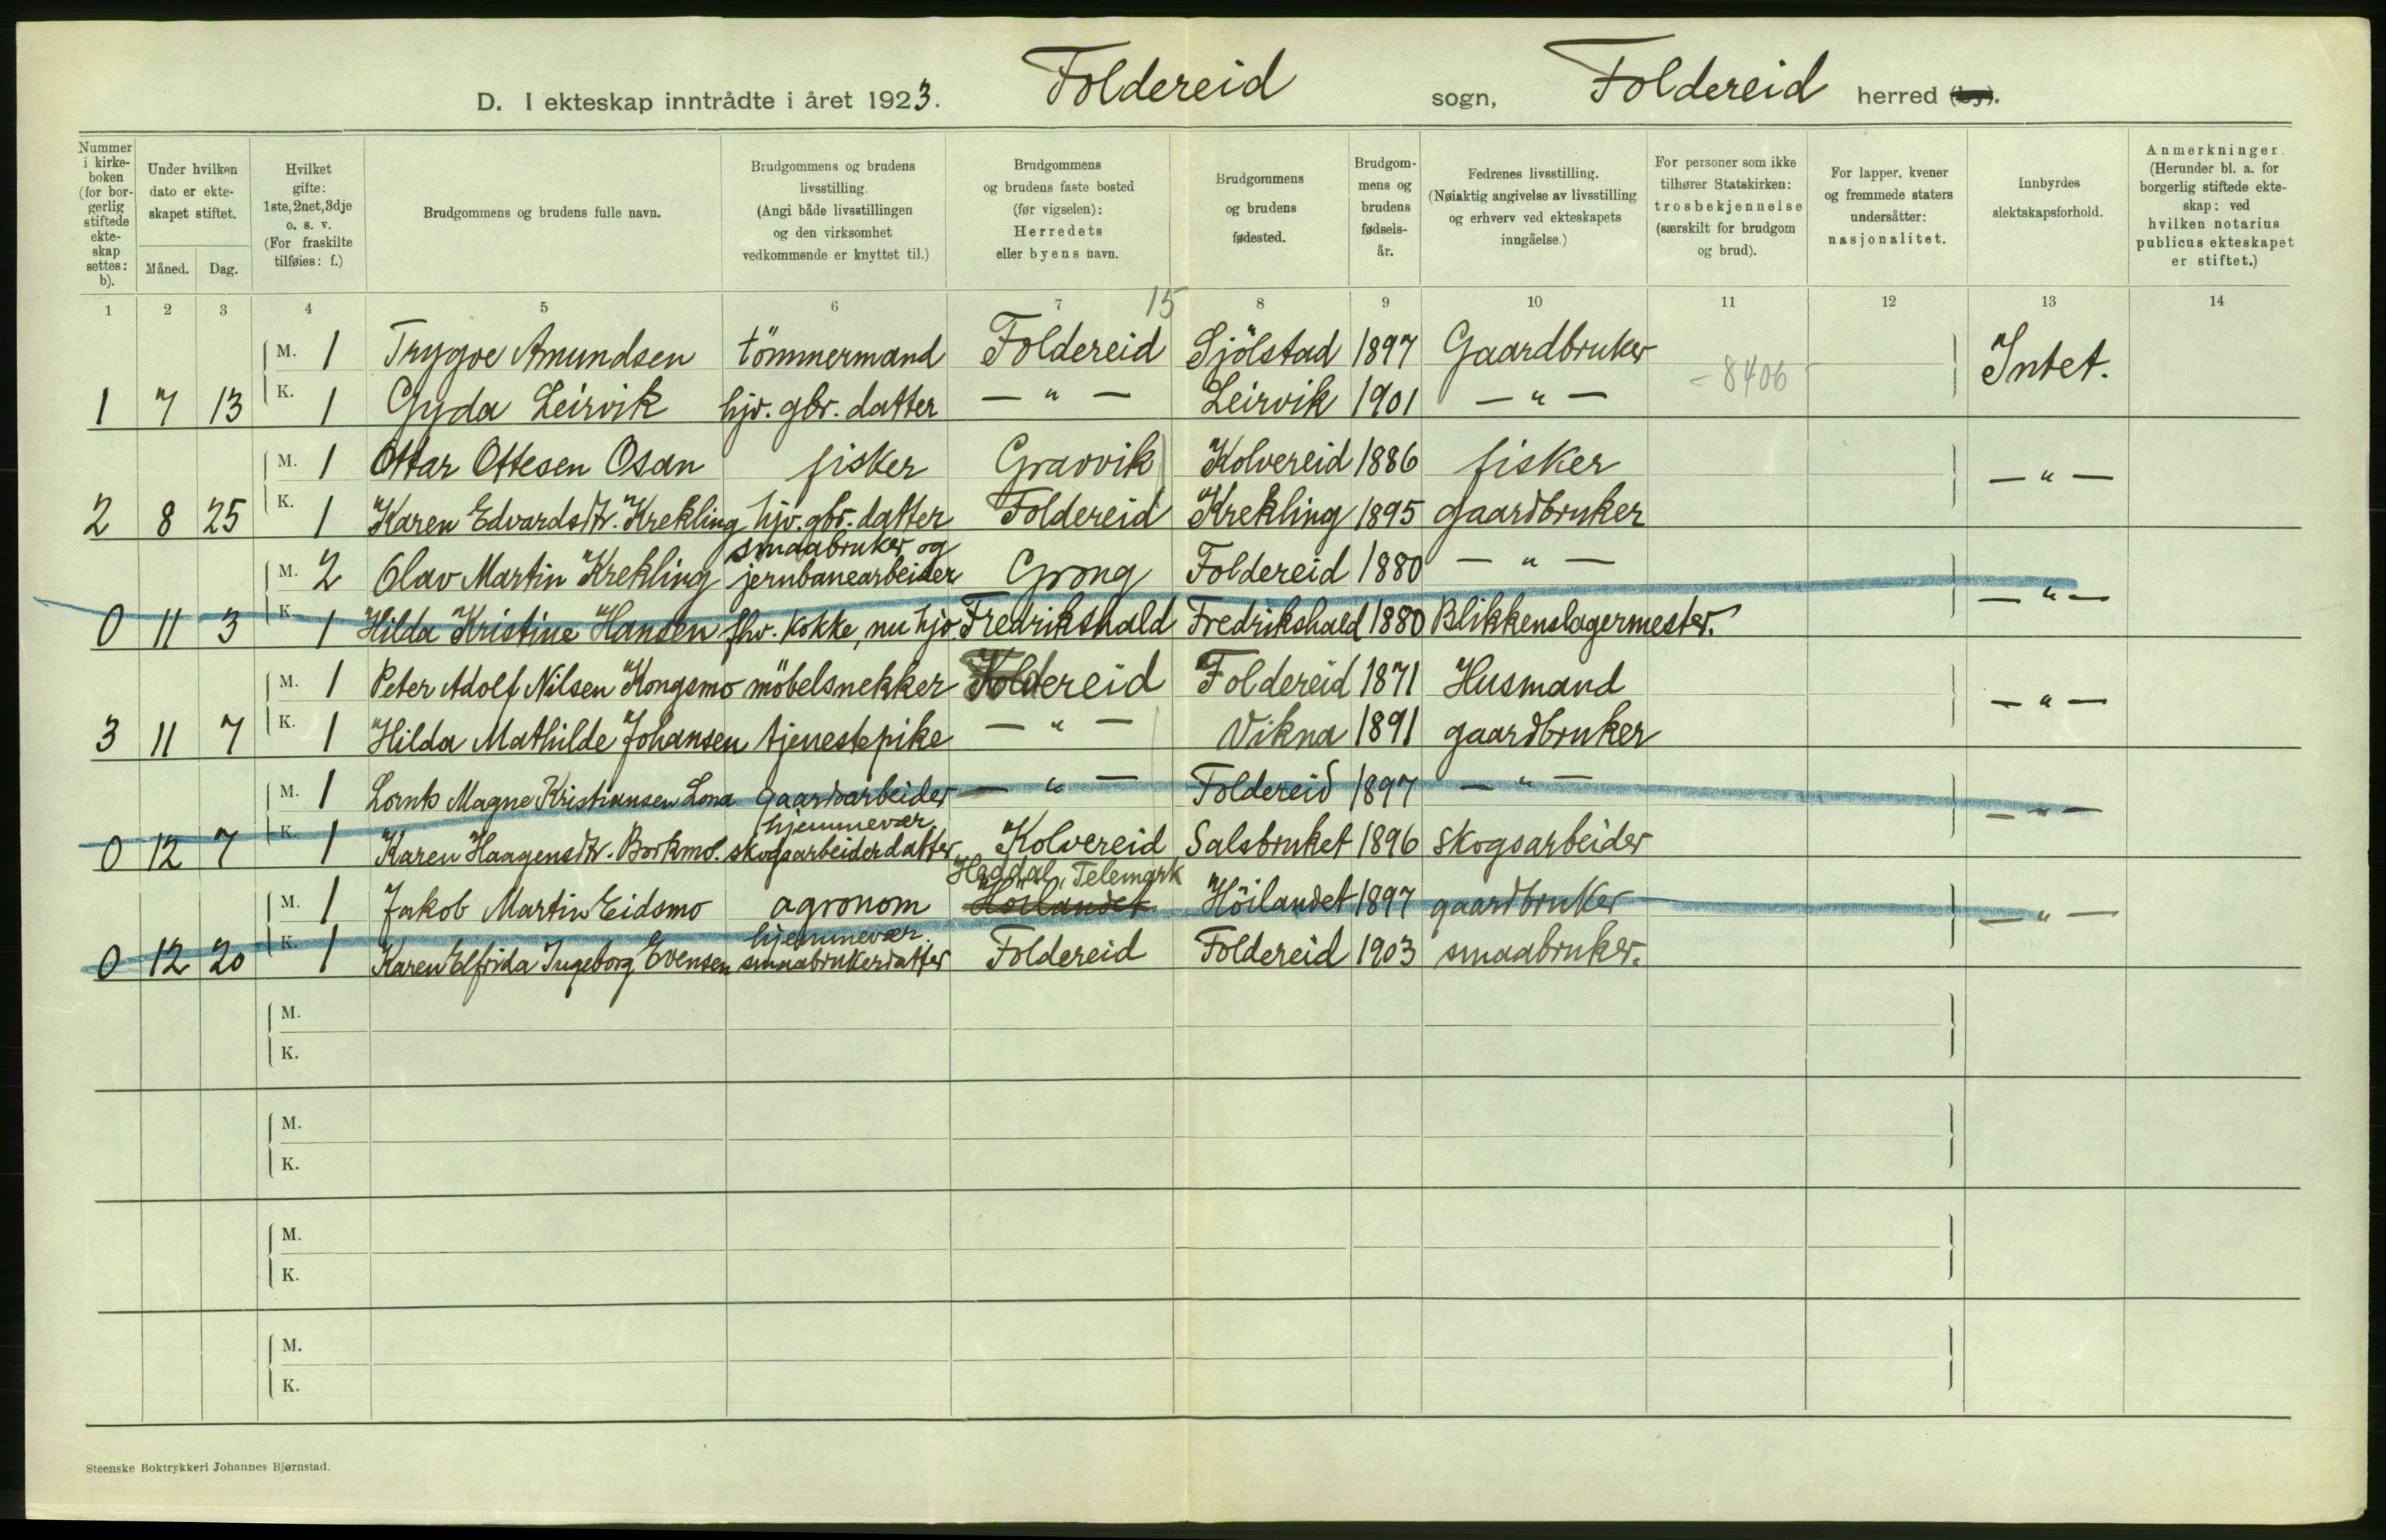 D. I ekteskap inntrådte i året 1923. Foldereid sogn, Foldereid herred (by).
Nummer i kirke-boken (for bor-gerlig stiftede ekte-skap settes: b).
Under hvilken dato er ekte-skapet stiftet.
Måned. Dag.
Hvilket gifte: 1ste, 2net, 3dje o. s. v. (For fraskilte tilføies: f.)
Brudgommens og brudens fulle navn.
Brudgommens og brudens livsstilling. (Angi både livsstillingen og den virksomhet vedkommende er knyttet til.)
Brudgommens og brudens faste bosted (før vigselen): Herredets eller byens navn.
Brudgommens og brudens fødested.
Brudgom-mens og brudens fødsels-år.
Fedrenes livsstilling. (Nøiaktig angivelse av livsstilling og erhverv ved ekteskapets inngåelse.)
For personer som ikke tilhører Statskirken: trosbekjennelse (særskilt for brudgom og brud).
For lapper, kvener og fremmede staters undersåtter: nasjonalitet.
Innbyrdes slektskapsforhold.
Anmerkninger. (Herunder bl. a. for borgerlig stiftede ekte-skap: ved hvilken notarius publicus ekteskapet er stiftet.)
1 2 3 4 5 6 7 15 8 9 10 11 12 13 14
M. 1 Trygve Amundsen tömmermand Foldereid Sjölstad 1897 Gaardbruker - 8406 Intet.
1 7 13 K. 1 Gyda Leirvik hjv. gbr. datter — " — Leirvik 1901 — " —
M. 1 Ottar Ottesen Osan fisker Gravvik Kolvereid 1886 fisker — " —
2 8 25 K. 1 Karen Edvardsdtr. Krekling hjv. gbr. datter Foldereid Krekling 1895 gaardbruker
smaabruker og
M. 2 Olav Martin Krekling jernbanearbeider Grong Foldereid 1880 — " — — " —
0 11 3 K. 1 Hilda Kristine Hansen fhv. kokke, nu hjv Fredrikshald Fredrikshald 1880 Blikkenslagermester.
M. 1 Peter Adolf Nilsen Kongsmo möbelsnekker Foldereid Foldereid 1871 Husmand — " —
3 11 7 K. 1 Hilda Mathilde Johansen tjenestepike — " — Vikna 1891 gaardbruker
M. 1 Lornts Magne Kristiansen Lona Gaardarbeider — " — Foldereid 1897 — " — — " —
hjemmevær.
0 12 7 K. 1 Karen Haagensdtr. Borkmo. skogsarbeiderdatter Kolvereid Salsbruket 1896 skogsarbeider
Heddal, Telemark
M. 1 Jakob Martin Eidsmo agronom Höilandet Höilandet 1897 gaardbruker — " —
hjemmevær.
0 12 20 K. 1 Karen Elfrida Ingeborg Evensen smaabrukerdatter Foldereid Foldereid 1903 smaabruker.
M.
K.
M.
K.
M.
K.
M.
K.
Steenske Boktrykkeri Johannes Bjørnstad.